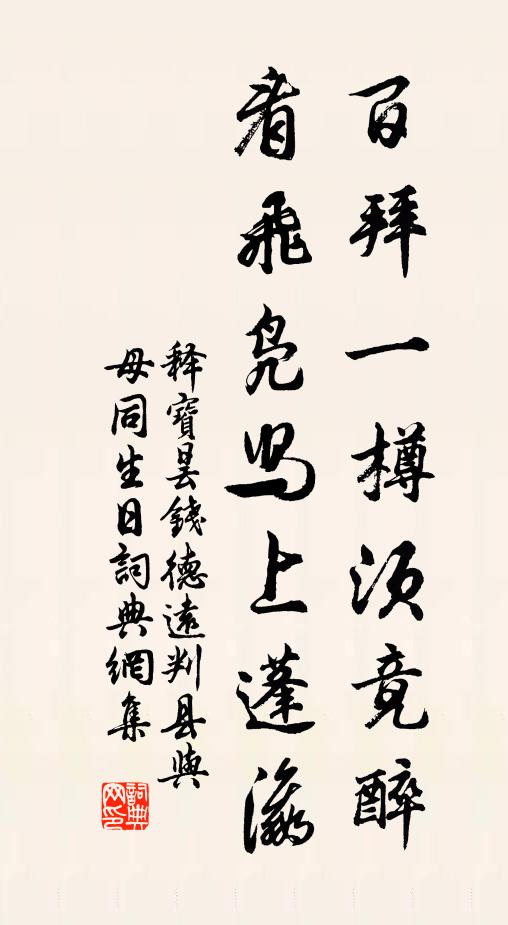 百拜一樽须竟醉
看飛凫舄上蓬瀛
释寶昙錢德遠判县與
母同生日詞典網集
詞典
网印